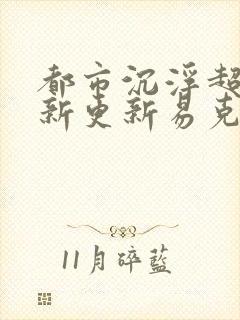 都市沉浮超
新更新易克
11月碎蓝